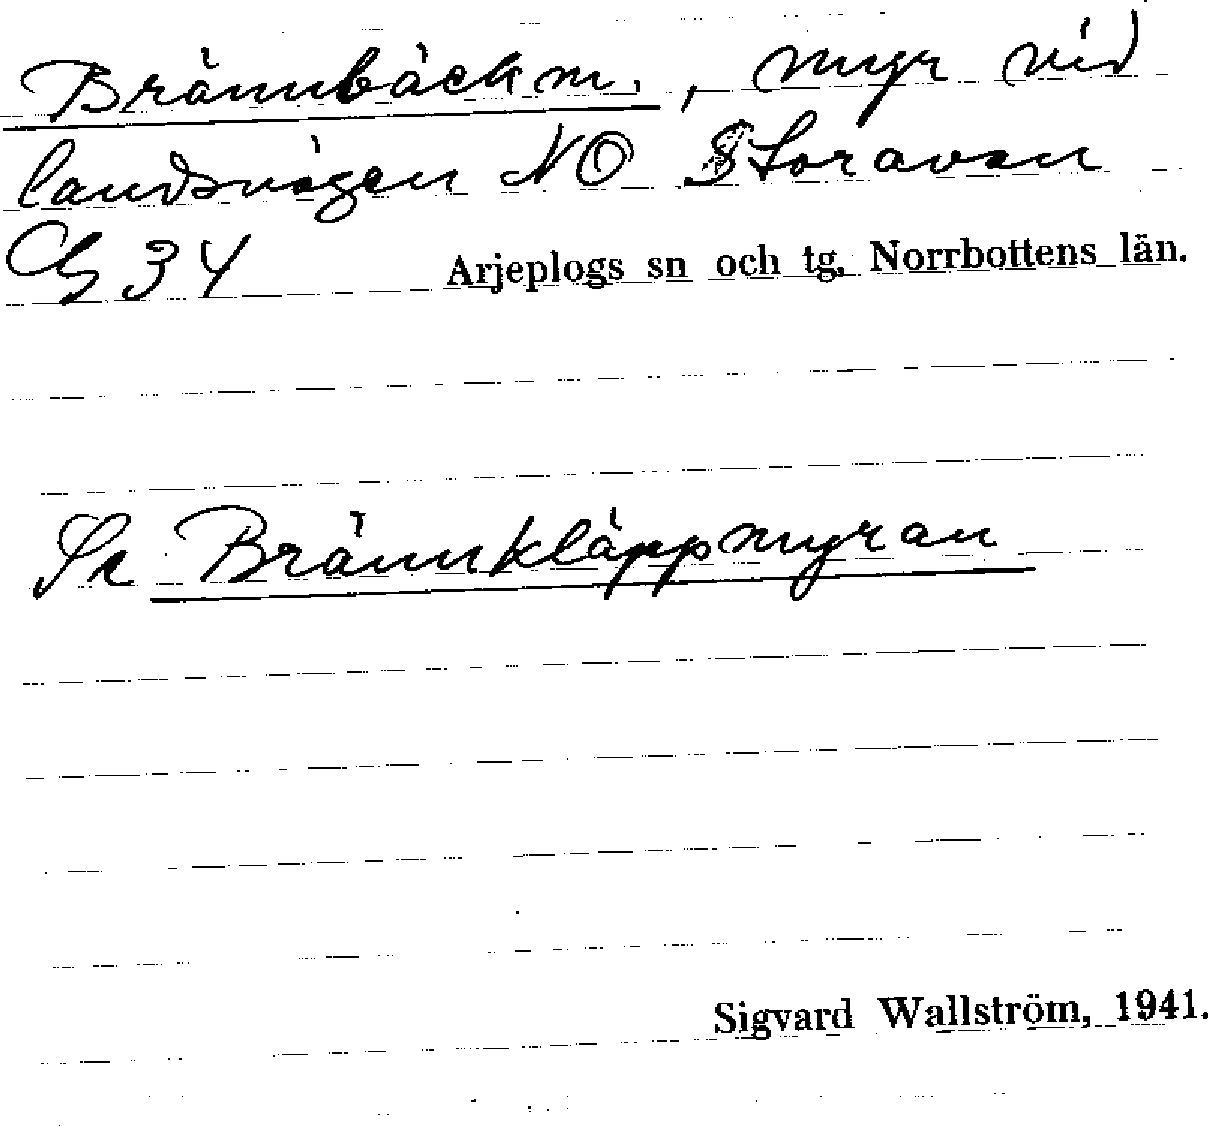 Brännbäckm., myr vid
landsvägen NO Storavan
G 34 Arjeplogs sn och tg. Norrbottens län.
Se Brännkläppmyran
Sigvard Wallström, 1941.